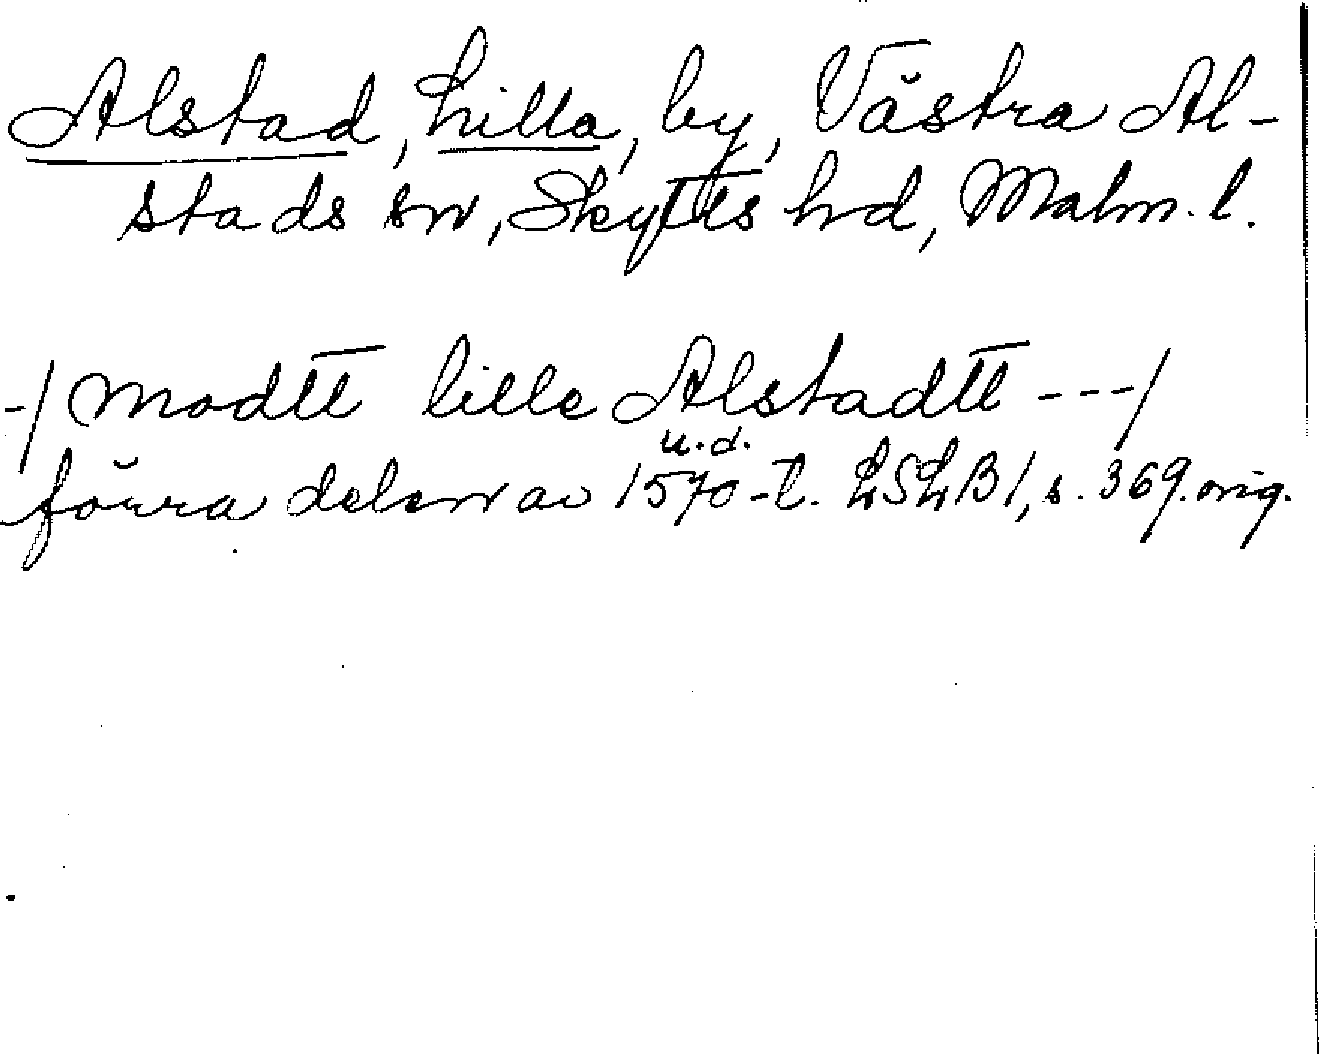 Alstad, Lilla, by, Västra Al-
stads sn, Skytts hd, Malm. l.
-/ modtt lille Alstadtt ---/
u.d.
förra delen av 1570-t. LSLB 1, s. 369. orig.